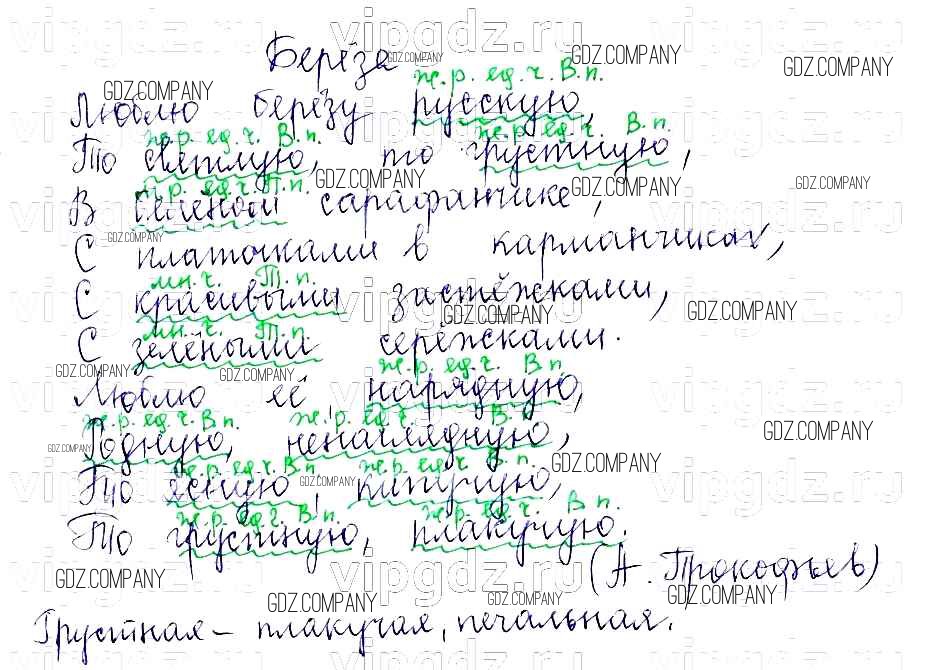 Берёза
ж.р. ед.ч. В.п.
Люблю берёзу русскую,
ж.р. ед.ч. В.п. ж.р. ед.ч. В.п.
То светлую, то грустную,
р. ед.ч. П.п.
В белёной сарафанчике,
С платочками в карманчиках,
мн.ч. Т.п.
С красивыми застёжками,
мн.ч. Т.п.
С зелёными серёжками.
ж.р. ед.ч. В.п.
Люблю её нарядную,
ж.р. ед.ч. В.п. ж.р. ед.ч. В.
Родную, ненаглядную,
ж.р. ед.ч. В.п. ж.р. ед.ч. В.п.
То ясную, кипучую,
ж.р. ед.ч. В.п. ж.р. ед.ч. В.п.
То грустную, плакучую.
(А. Прокофьев)
Грустная – плакучая, печальная.
vipgdz.ru
GDZ.COMPANY